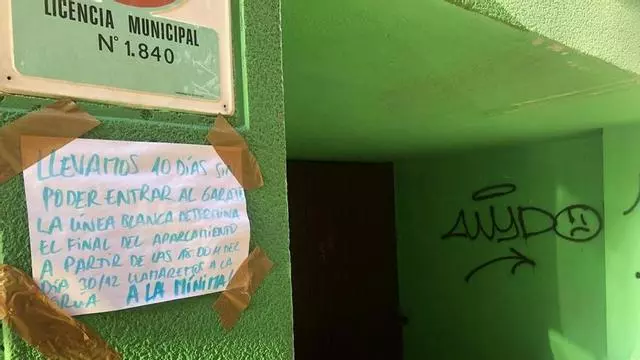 LICENCIA MUNICIPAL
Nº 1.840
LLEVAMOS 10 DÍAS SIN
PODER ENTRAR AL GARATE
LA LÍNEA BLANCA DETERMINA
EL FINAL DEL APARCAMIENTO
A PARTIR DE LAS 15:00 H DEL
DÍA 30/12 LLAMAREMOS A LA
GRUA A LA MÍNIMA!